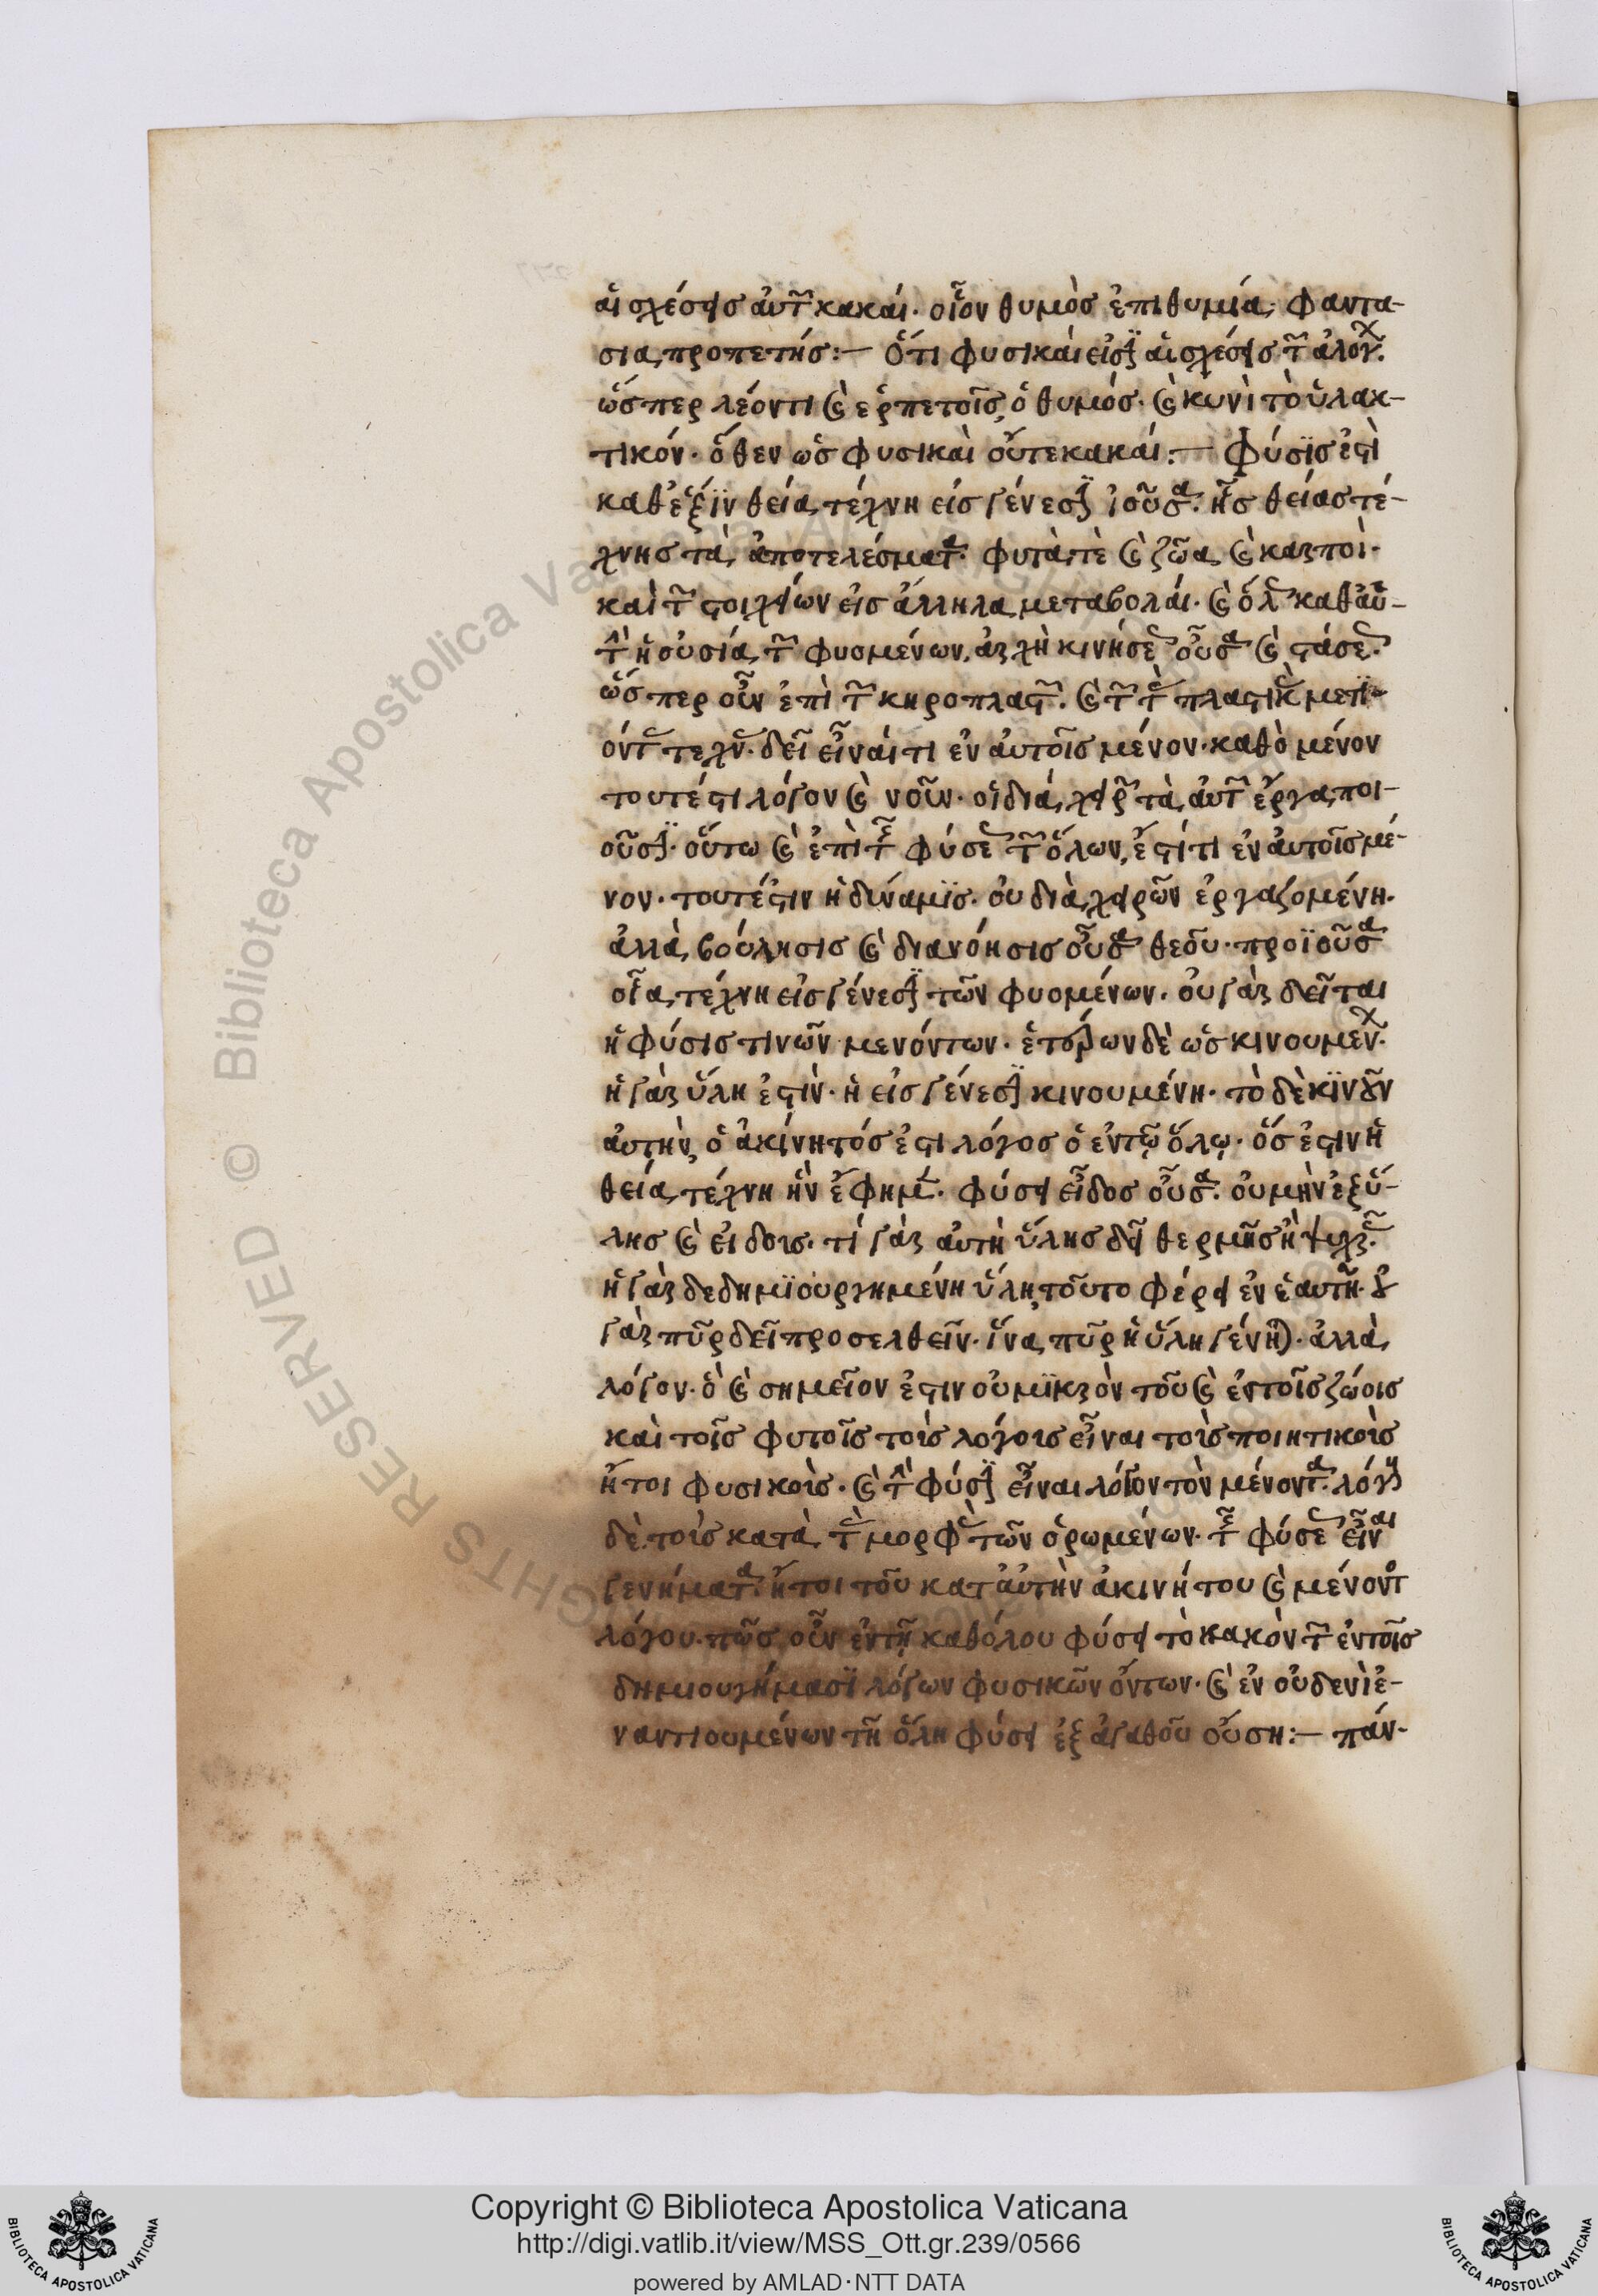 αἱ σχέσεισ αὐτῶν κακαί· οἷον θυμὸσ ἐπιθυμία, φαντα-
σία προπετήσ:— Ὅτι φυσικαί εἰσϊν αἱ σχέσεισ τῶν ἀλόγων.
ὥσπερ λέοντι καὶ ἑρπετοῖσ, ὁ θυμόσ· καὶ κυνὶ τὸ ὑλακ-
τικόν· ὅθεν ὡσ φυσικαὶ οὔτε κακαί:— Φύσϊσ ἐστὶ
καθ' ἕξϊν θεία τέχνη εἰσ γένεσϊν ἰοῦσα. ἧσ θείασ τέ-
χνησ τὰ ἀποτελέσματα. φυτά τὲ καὶ ζῶα, καὶ καρποί·
καὶ τῶν στοιχείων εἰσ ἄλληλα μεταβολαί· καὶ ὅλωσ καθ' αὑ-
τὴν ἡ οὐσία τῶν φυομένων, ἀρχὴ κινήσεωσ οὖσα καὶ στάσεωσ.
ὥσπερ οὖν ἐπὶ τῶν κηροπλαστῶν. καὶ τῶν τὴν πλαστικὴν μετϊ-
όντων τεχνῶν. δεῖ εἶναί τι ἐν αὐτοῖσ μένον· καθὸ μένον
τουτέστι λόγον καὶ νοῦν· οἳ διὰ χειρῶν τὰ αὐτῶν ἔργα ποι-
οῦσϊν· οὕτω καὶ ἐπὶ τῆσ φύσεωσ τῶν ὅλων, ἐστί τι ἐν αὐτοῖσ μέ-
νον· τουτέστιν ἡ δύναμϊσ· οὐ διὰ χειρῶν ἐργαζομένη·
ἀλλὰ βούλησισ καὶ διανόησισ οὖσα θεοῦ· προϊοῦσα
οἷα τέχνη εἰσ γένεσϊν τῶν φυομένων. οὐ γὰρ δεῖται
ἡ φύσισ τινῶν μενόντων· ἑτέρων δὲ ὡσ κινουμένων·
ἡ γὰρ ὕλη ἐστὶν· ἡ εἰσ γένεσϊν κινουμένη· τὸ δὲ κϊνοῦν
αὐτὴν, ὁ ἀκίνητόσ ἐστι λόγοσ ὁ ἐν τῷ ὅλῳ· ὅσ ἐστιν ἡ
θεία τέχνη ἣν ἔφημεν· φύσει εἶδοσ οὖσα. οὐ μὴν ἐξ ὕ-
λησ καὶ εἴδουσ· τί γὰρ αὐτὴ ὕλησ δεῖ θερμῆσ ἢ ψυχρᾶσ.
ἡ γὰρ δεδημϊουργημένη ὕλη, τοῦτο φέρει ἐν ἑαυτῆ· οὐ
γὰρ πῦρ δεῖ προσελθεῖν· ἵνα πῦρ ἡ ὕλη γένηται· ἀλλὰ
λόγον· ὃ καὶ σημεῖον ἐστιν οὐ μϊκρὸν τοῦ καὶ ἐν τοῖσ ζώοισ
καὶ τοῖσ φυτοῖσ τοὺσ λόγουσ εἶναι τοὺσ ποιητικοὺσ
ἤτοι φυσικοὺσ· καὶ τὴν φύσϊν εἶναι λόγον τὸν μένοντα. λόγουσ
δὲ τοὺσ κατὰ τὴν μορφὴν τῶν ὁρωμένων· τῆσ φύσεωσ εἶναι
γενήματα. ἤτοι τοῦ κατ' αὐτὴν ἀκινήτου καὶ μένοντοσ
λόγου· πῶσ οὖν ἐν τῇ καθόλου φύσει τὸ κακὸν τῶν ἐν τοῖσ
δημιουργήμασϊ λόγων φυσικῶν ὄντων· καὶ ἐν οὐδενὶ ἐ-
ναντιουμένων τῆ ὅλη φύσει ἐξ ἀγαθοῦ οὔση:— πάν-
Copyright © Biblioteca Apostolica Vaticana
http://digi.vatlib.it/view/MSS_Ott.gr.239/0566
powered by AMLAD·NTT DATA